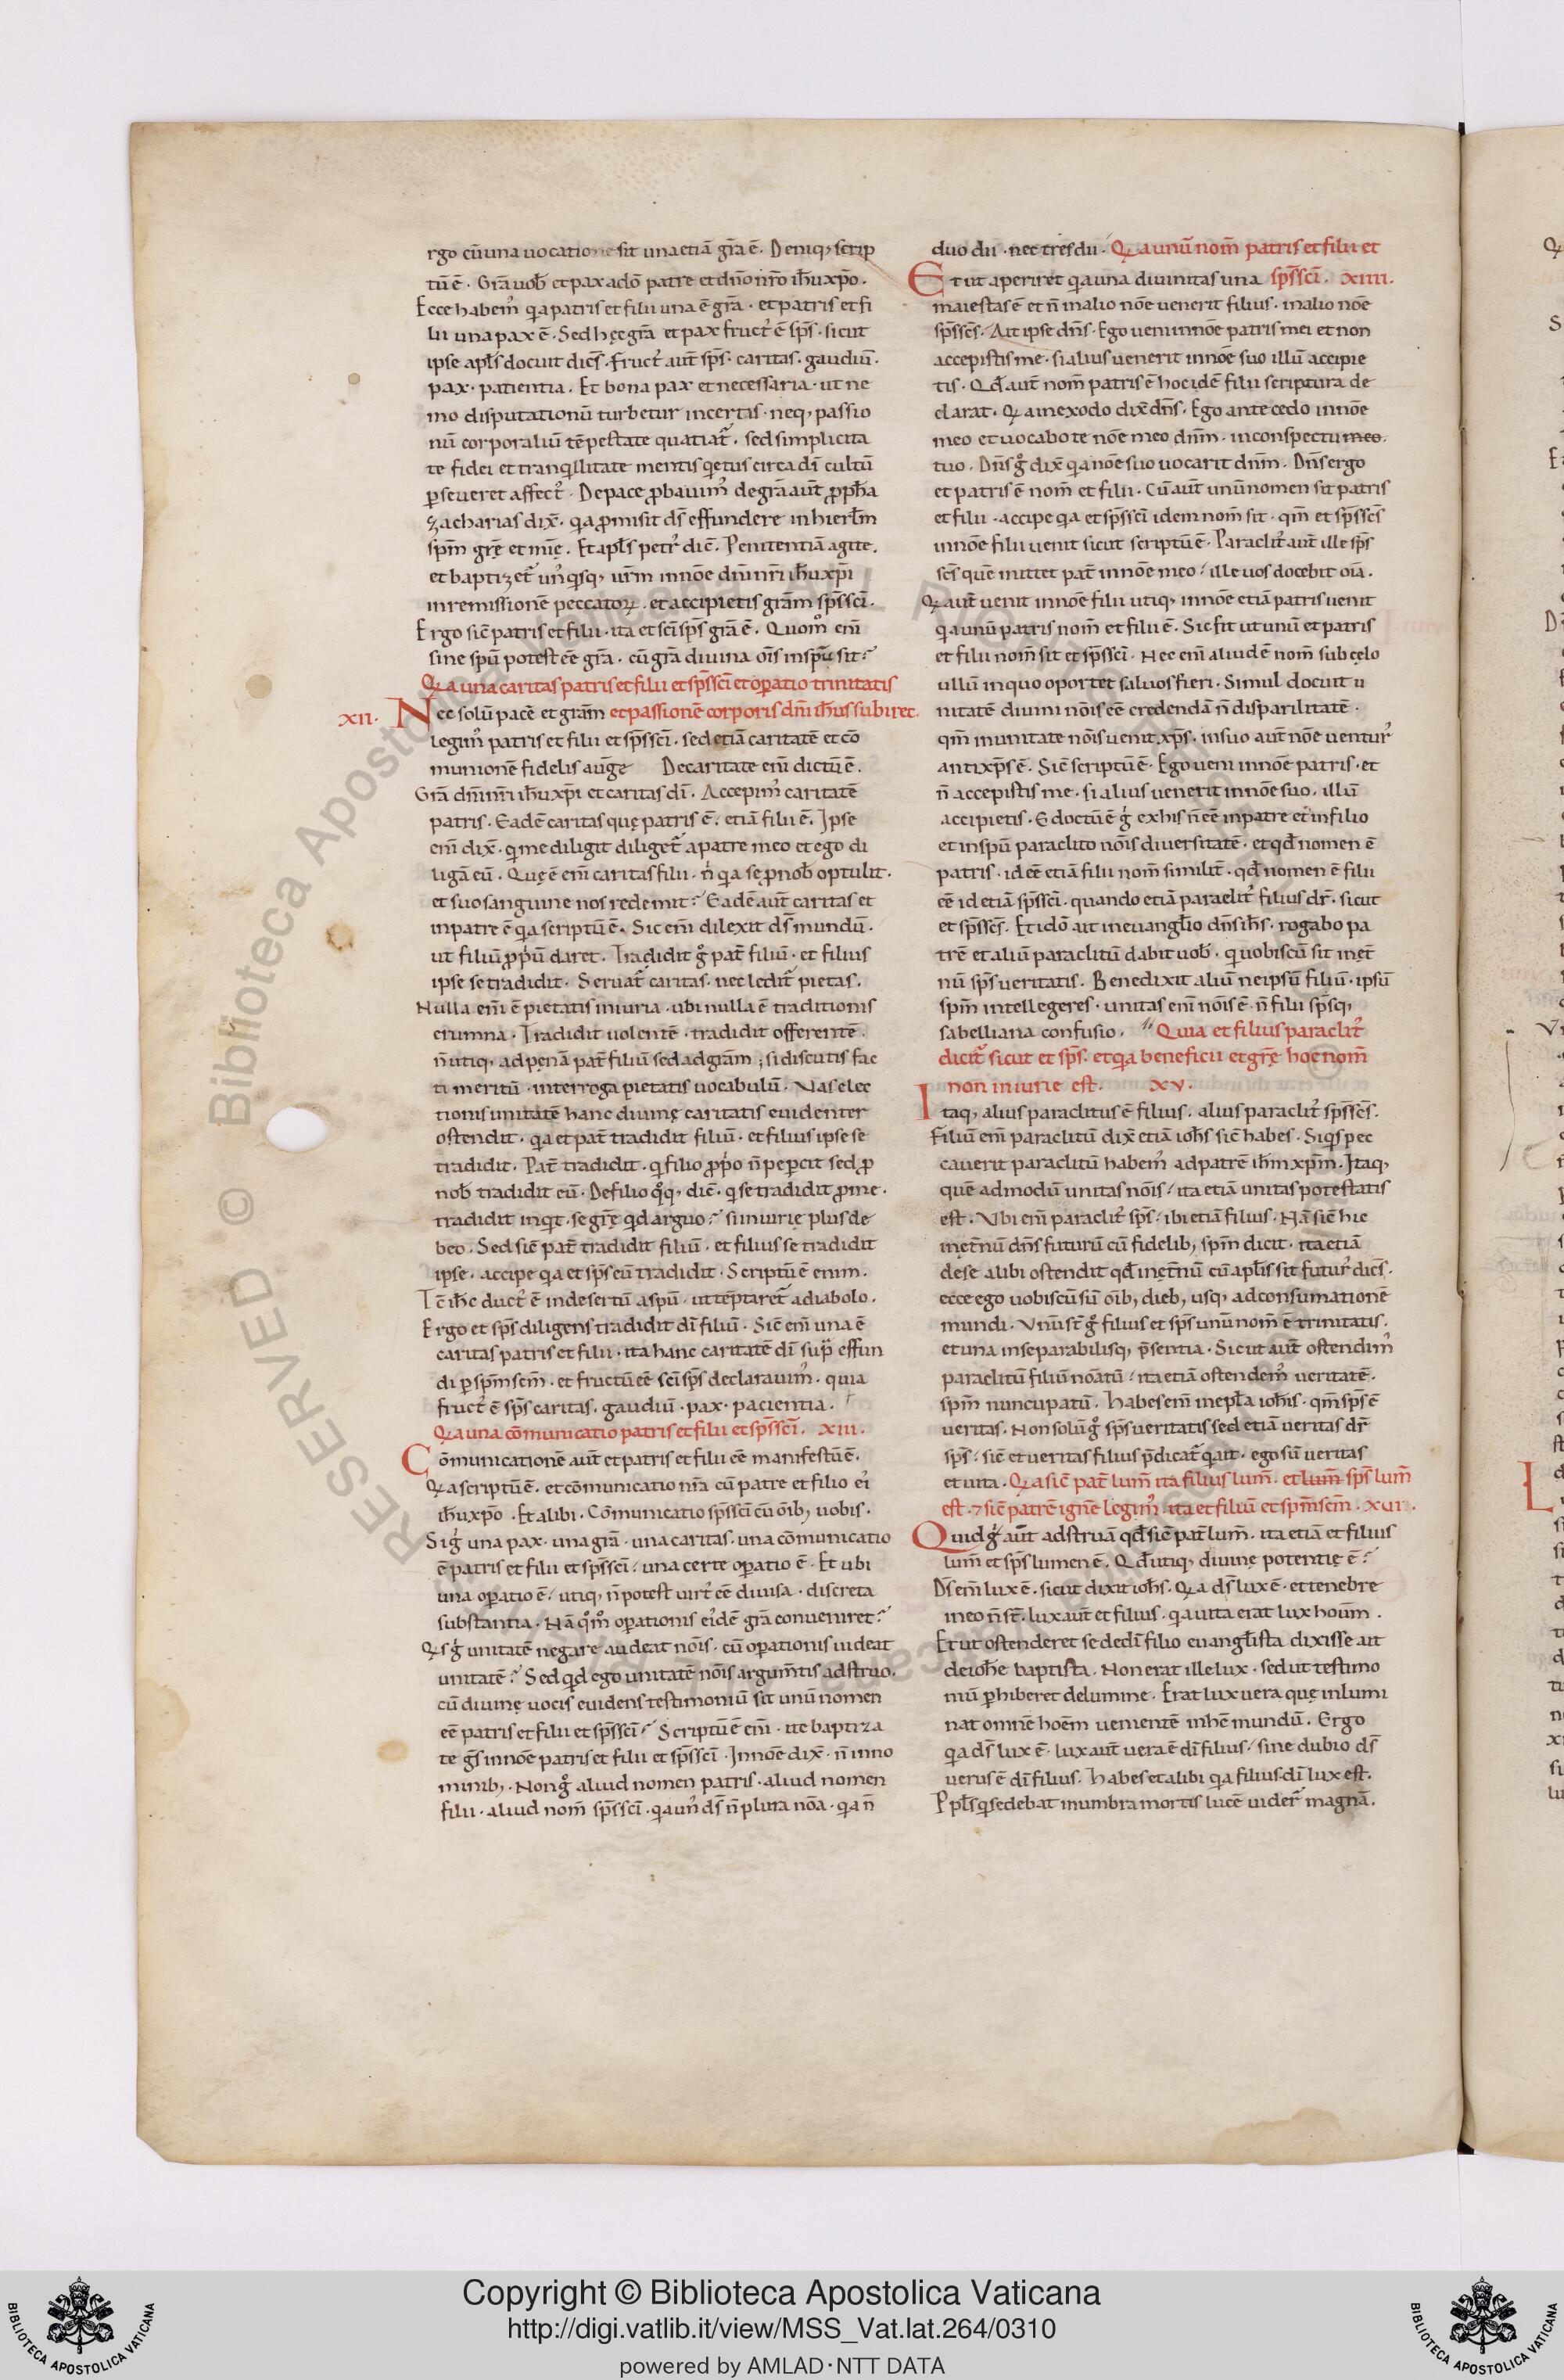 rgo cū una uocatione sit una etiā gr̄a ē. Deniq; scrip
tū ē. Gr̄a uob̄ et pax a dō patre et dn̄o nr̄o ih̄u xp̄o.
Ecce habem᷒ qa patris et filii una ē gr̄a. et patris et fi
lii una pax ē. Sed hęc gr̄a et pax fruct᷒ ē sp̄s. sicut
ipse apl̄s docuit dicēs. fruct᷒ aut̄ sp̄s. caritas. gaudiū.
pax. patientia. Et bona pax et necessaria. ut ne
mo disputationū turbetur incertis. neq; passio
nū corporaliū tēpestate quatiat᷑. sed simplicita
te fidei et tranqllitate mentis qetus circa dī cultū
pseueret affect᷒. De pace pbauim᷒ de gr̄a aut̄ pph̄a
zacharias dix̄. qa pmisit ds̄ effundere in hierl̄m
sp̄m gr̄ę et mīę. Et apl̄s petr᷒ dic̄. Penitentiā agite.
et baptizet᷑ un᷒qsq; ur̄m in nōe dn̄i nr̄i ih̄u xp̄i
in remissionē peccatoꝝ. et accipietis gr̄am sp̄s sc̄i.
Ergo sic̄ patris et filii. ita et sc̄i sp̄s gr̄a ē. Quom̊ enī
sine sp̄u potest ēe gr̄a. cū gr̄a diuina oīs in sp̄u sit?
Qa una caritas patris et filii et sp̄s sc̄i et opatio trinitatis
XII. Nec solū pacē et gr̄am et passionē corporis dn̄i ih̄us subiret.
legim᷒ patris et filii et sp̄s sc̄i. sed etiā caritatē et cō
munionē fidelis auge De caritate enī dictū ē.
Gr̄a dn̄i nr̄i ih̄u xp̄i et caritas dī. Accepim᷒ caritatē
patris. Eadē caritas quę patris ē. etiā filii ē. Ipse
enī dix̄. qi me diligit diliget᷑ a patre meo et ego di
ligā eū. Quę ē enī caritas filii. n̄ qa se p nob̄ optulit.
et suo sanguine nos redemit? Eadē aut̄ caritas et
in patre ē qa scriptū ē. Sic enī dilexit ds̄ mundū.
ut filiū ppiū daret. Tradidit g̊ pat̄ filiū. et filius
ipse se tradidit. Seruat᷑ caritas. nec ledit᷑ pietas.
Nulla enī ē pietatis iniuria. ubi nulla ē traditionis
erumna. Tradidit uolentē. tradidit offerentē.
n̄ utiq; ad pęnā pat̄ filiū sed ad gr̄am; si discutis fac
ti meritū. interroga pietatis uocabulū. Vas elec
tionis unitatē hanc diuinę caritatis euidenter
ostendit. qa et pat̄ tradidit filiū. et filius ipse se
tradidit. Pat̄ tradidit. qi filio ppio n̄ pepcit sed p
nob̄ tradidit eū. De filio q̊q; dic̄. qi se tradidit p me.
tradidit inqit. se gr̄ę qd arguo? si iniurię plus de
beo. Sed sic̄ pat̄ tradidit filiū. et filius se tradidit
ipse. accipe qa et sp̄s eū tradidit. Scriptū ē enim.
Tc̄ ih̄c duct᷒ ē in desertū a sp̄u. ut tēptaret᷑ a diabolo.
Ergo et sp̄s diligens tradidit dī filiū. Sic̄ enī una ē
caritas patris et filii. ita hanc caritatē dī supͣ effun
di p sp̄m sc̄m. et fructū ēe sc̄i sp̄s declarauim᷒. quia
fruct᷒ ē sp̄s caritas. gaudiū. pax. pacientia.
Qa una cōmunicatio patris et filii et sp̄s sc̄i. XIII.
Cōmunicationē aut̄ et patris et filii ēe manifestū ē.
Qa scriptū ē. et cōmunicatio nr̄a cū patre et filio ei᷒
ih̄u xp̄o. Et alibi. Cōmunicatio sp̄s sc̄i cū ōib; uobis.
Si g̊ una pax. una gr̄a. una caritas. una cōmunicatio
ē patris et filii et sp̄s sc̄i. una certe opatio ē. Et ubi
una opatio ē. utiq; n̄ potest uirt᷒ ēe diuisa. discreta
substantia. Nā q̊m̊ opationis ei᷒dē gr̄a conueniret?
Qis g̊ unitatē negare audeat nōis. cū opationis uideat
unitatē? Sed qd ego unitatē nōis argum̄tis adstruo.
cū diuinę uocis euidens testimoniū sit unū nomen
ēe patris et filii et sp̄s sc̄i? Scriptū ē enī. ite baptiza
te gs̄ in nōe patris et filii et sp̄s sc̄i. In nōe dix̄. n̄ in no
minib;. Non g̊ aliud nomen patris. aliud nomen
filii. aliud nom̄ sp̄s sc̄i. qa un᷒ ds̄ n̄ plura nōa. qa n̄
duo dii. nec tres dii. Qa unū nom̄ patris et filii et
Et ut aperiret qa una diuinitas una sp̄s sc̄i. XIIII.
maiestas ē et n̄ in alio nōe uenerit filius. in alio nōe
sp̄s sc̄s. Ait ipse dn̄s. Ego ueni in nōe patris mei et non
accepistis me. si alius uenerit in nōe suo illū accipie
tis. Qd̄ aut̄ nom̄ patris ē hoc idē filii scriptura de
clarat. Qa in exodo dix̄ dn̄s. Ego antecedo in nōe
meo et uocabo te nōe meo dn̄m. in conspectu meo.
tuo. Dn̄s g̊ dix̄ qa nōe suo uocarit dn̄m. Dn̄s ergo
et patris ē nom̄ et filii. Cū aut̄ unū nomen sit patris
et filii. accipe qa et sp̄s sc̄i idem nom̄ sit. qm̄ et sp̄s sc̄s
in nōe filii uenit sicut scriptū ē. Paraclit᷒ aut̄ ille sp̄s
sc̄s quē mittet pat̄ in nōe meo. ille uos docebit oīa.
Qi aut̄ uenit in nōe filii utiq; in nōe etiā patris uenit
qa unū patris nom̄ et filii ē. Sic fit ut unū et patris
et filii nom̄ sit et sp̄s sc̄i. Nec enī aliud ē nom̄ sub cęlo
ullū in quo oportet saluos fieri. Simul docuit u
nitatē diuini nōis ēe credendā n̄ disparilitatē.
qm̄ in unitate nōis uenit xp̄s. in suo aut̄ nōe uentur᷒
antixp̄s ē. Sic̄ scriptū ē. Ego ueni in nōe patris. et
n̄ accepistis me. si alius uenerit in nōe suo. illū
accipietis. Edoctū ē g̊ ex his n̄ ēe in patre et in filio
et in sp̄u paraclito nōis diuersitatē. et qd̄ nomen ē
patris. id ēe etiā filii nom̄ similit̄. qd̄ nomen ē filii
ēe id etiā sp̄s sc̄i. quando etiā paraclit᷒ filius dr̄. sicut
et sp̄s sc̄s. Et idō ait in euanglīo dn̄s ih̄s. rogabo pa
trē et aliū paraclitū dabit uob̄. qi uobiscū sit in ęt̄
nū sp̄s ueritatis. Bene dixit aliū ne ipsū filiū. ipsū
sp̄m intellegeres. unitas enī nōis ē. n̄ filii sp̄sq;
sabelliana confusio. Quia et filius paraclit᷒
dicit᷑ sicut et sp̄s. et qa beneficii et gr̄ę hoc nom̄
non iniurie est. XV.
Itaq; alius paraclitus ē filius. alius paraclit᷒ sp̄s sc̄s.
Filiū enī paraclitū dix̄ etiā ioh̄s sic̄ habes. Si qis pec
cauerit paraclitū habem᷒ ad patrē ih̄m xp̄m. Itaq;
quē admodū unitas nōis. ita etiā unitas potestatis
est. Vbi enī paraclit᷒ sp̄s. ibi etiā filius. Nā sic̄ hic
in ęt̄nū dn̄s futurū cū fidelib; sp̄m dicit. ita etiā
de se alibi ostendit qd̄ in ęt̄nū cū apl̄is sit futur᷒ dicēs.
ecce ego uobiscū sū ōib; dieb; usq; ad consumationē
mundi. Vnū st̄ g̊ filius et sp̄s unū nom̄ ē trinitatis.
et una inseparabilisq; p̄sentia. Sicut aut̄ ostendim᷒
paraclitū filiū nōatū. ita etiā ostendem᷒ ueritatē.
sp̄m nuncupatū. Habes enī in epl̄a ioh̄is. qm̄ sp̄s ē
ueritas. Non solū g̊ sp̄s ueritatis sed etiā ueritas dr̄
sp̄s. sic̄ et ueritas filius p̄dicat᷑ qi ait. ego sū ueritas
et uita. Qa sic̄ pat̄ lum̄ ita filius lum̄. et lum̄ sp̄s lum̄
est. ⁊ sic̄ patrē ignē legim᷒. ita et filiū et sp̄m sc̄m. XVI.
Quid g̊ aut̄ adstruā qd̄ sic̄ pat̄ lum̄. ita etiā et filius
lum̄ et sp̄s lumen ē. Qd̄ utiq; diuinę potentię ē?
Ds̄ enī lux ē. sicut dixit ioh̄s. Qa ds̄ lux ē. et tenebre
in eo n̄ st̄. lux aut̄ et filius. qa uita erat lux hoūm.
Et ut ostenderet se de dī filio euanglīsta dixisse ait
de ioh̄e baptista. Non erat ille lux. sed ut testimo
niū phiberet de lumine. Erat lux uera quę inlumi
nat omnē hoēm uenientē in hē mundū. Ergo
qa ds̄ lux ē. lux aut̄ uera ē dī filius. sine dubio ds̄
uerus ē dī filius. Habes et alibi qa filius dī lux est.
Ppl̄s qi sedebat in umbra mortis lucē uider̄ magnā.
Copyright © Biblioteca Apostolica Vaticana
http://digi.vatlib.it/view/MSS_Vat.lat.264/0310
powered by AMLAD·NTT DATA